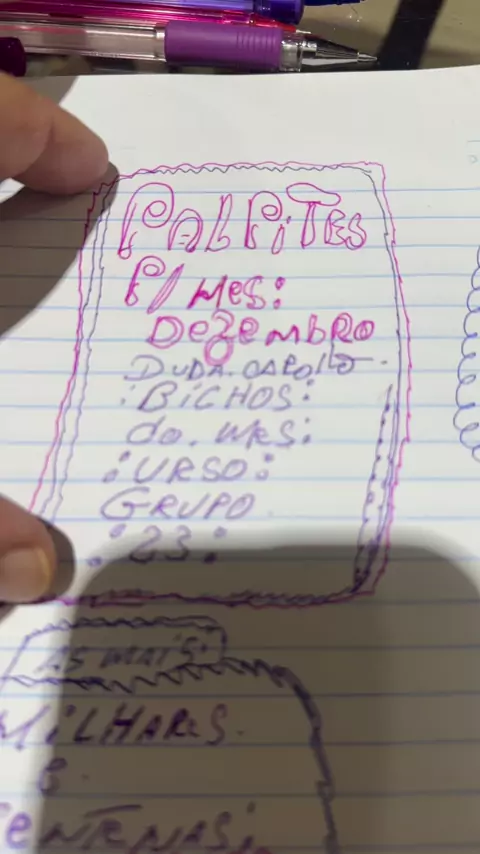 PALPITES
P/ MES:
DEZEMBRO
DUDA.CAPOLLO.
:BICHOS:
do. MES:
:URSO:
GRUPO
:23:
AS MAIS:
MILHARES.
E
CENTENAS: